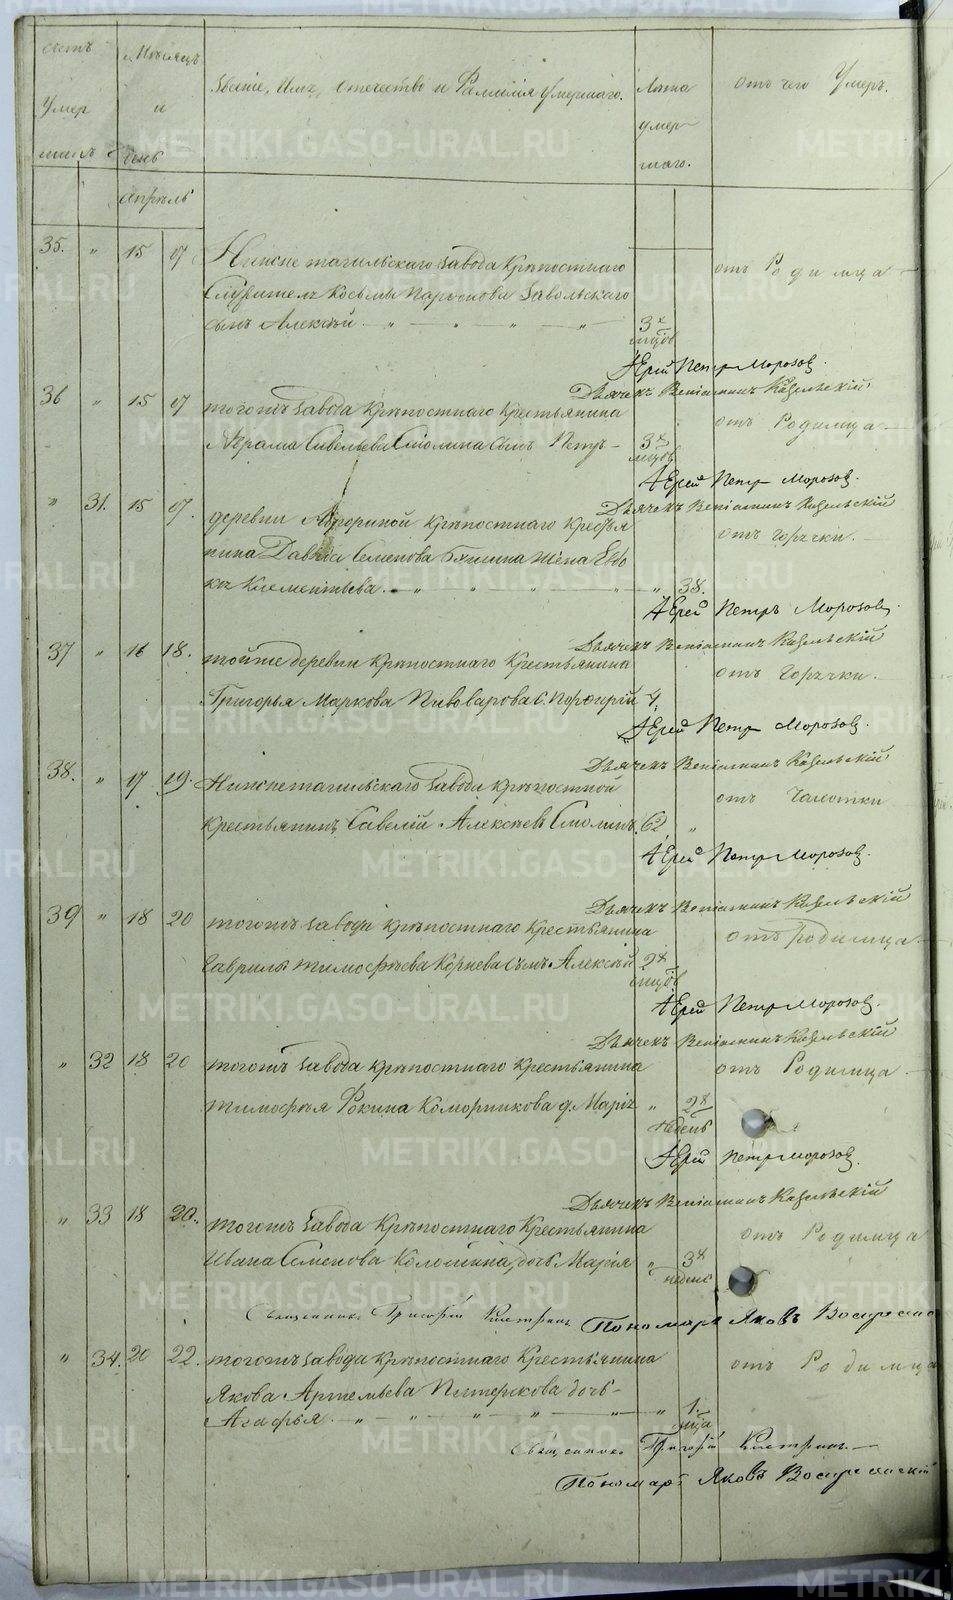 Счетъ умершихъ
Мѣсяцъ и день
Званіе, Имя, отечество и Фамилія Умершаго.
Лѣта умершаго.
Отъ чего Умеръ.
Апрѣль
35. " 15 17 Нижне тагильскаго завода Крѣпостнаго
Служителя Косьмы Завольскаго
сынъ Алексѣй " " " " 3х мцов
отъ Родимца
Іерей Петръ Морозовъ.
Дьячекъ Веніаминъ
36 " 15 17 тогожъ завода Крѣпостнаго Крестьянина
Абрама Савельева Смолина сынъ Петръ 3х мцов
отъ Родимца
Іерей Петръ Морозовъ.
Дьячекъ Веніаминъ
" 31. 15 17. деревни Крѣпостнаго Крестья
нина Давыда Семенова жена Евдо
кія Клементьева. " " " " " 38.
отъ Горячки.
Іерей Петръ Морозовъ.
Дьячекъ Веніаминъ
37 " 16 18. тойже деревни Крѣпостнаго Крестьянина
Григорья Маркова Пивоварова с. Порфирій 4
отъ Горячки.
Іерей Петръ Морозовъ.
Дьячекъ Веніаминъ
38. " 17 19. Нижнетагильскаго завода крѣпостной
Крестьянинъ Савелій Алексѣевъ Смолинъ. 62 "
отъ Чахотки
Іерей Петръ Морозовъ.
Дьячекъ Веніаминъ
39 " 18 20 тогожъ завода крѣпостнаго Крестьянина
Гаврилы Тимофѣева Корнева сынъ Алексѣй 2х мцов
отъ Родимца
Іерей Петръ Морозовъ.
Дьячекъ Веніаминъ
" 32 18 20 тогожъ завода крѣпостнаго крестьянина
Тимофѣя Фокина Коморникова д. Марія " 2х недель
отъ Родимца
Іерей Петръ Морозовъ.
Дьячекъ Веніаминъ
" 33 18 20. тогожъ завода Крѣпостнаго Крестьянина
Ивана Семенова дочь Марія " 3х недель
отъ Родимца
Священникъ Григорій Пономарь Яковъ
" 34. 20 22. тогожъ завода крѣпостнаго Крестьянина
Якова Артемьева дочь
Агафья. " " " " " " 1. мца
отъ Родимца
Священникъ Григорій
Пономарь Яковъ
METRIKI.GASO-URAL.RU